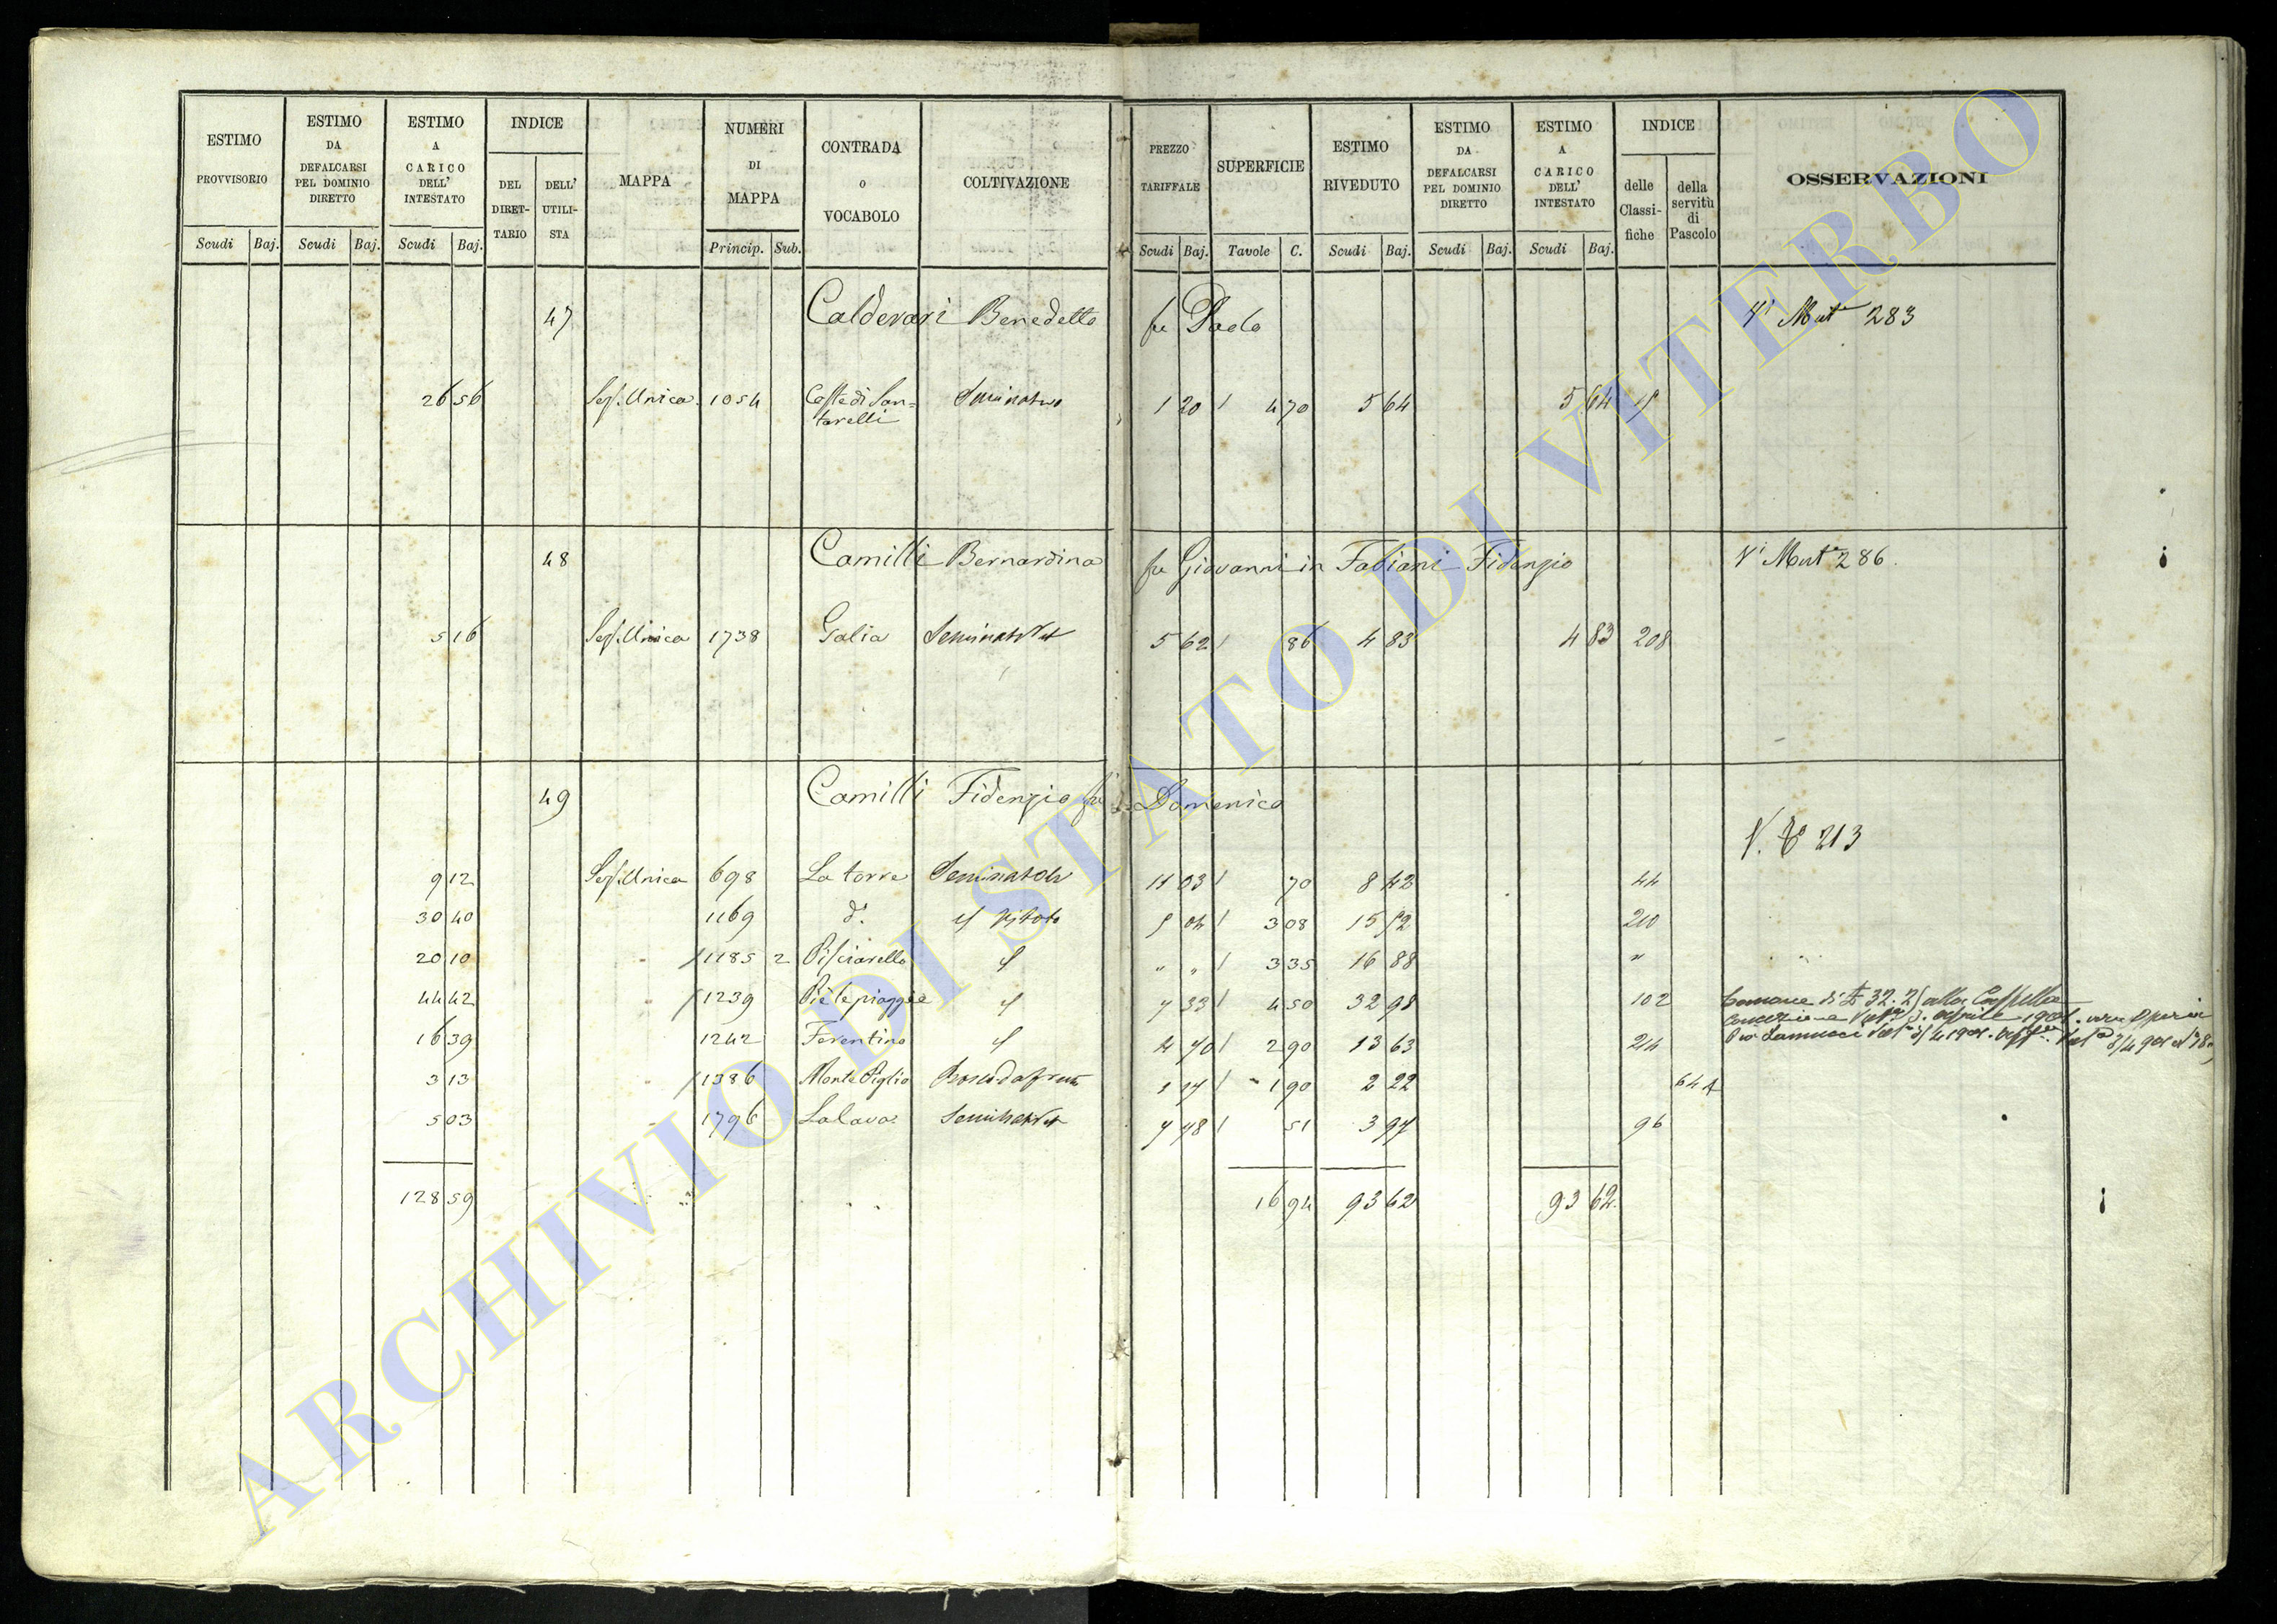 ESTIMO PROVVISORIO
ESTIMO DA DEFALCARSI PEL DOMINIO DIRETTO
ESTIMO A CARICO DELL' INTESTATO
INDICE
DEL DIRET-TARIO
DELL' UTILI-STA
MAPPA
NUMERI DI MAPPA
CONTRADA O VOCABOLO
COLTIVAZIONE
PREZZO TARIFFALE
SUPERFICIE
ESTIMO RIVEDUTO
ESTIMO DA DEFALCARSI PEL DOMINIO DIRETTO
ESTIMO A CARICO DELL' INTESTATO
INDICE
delle Classi-fiche
della servitù di Pascolo
OSSERVAZIONI
Scudi Baj. Scudi Baj. Scudi Baj. Princip. Sub. Scudi Baj. Tavole C. Scudi Baj. Scudi Baj. Scudi Baj.
47 Calderari Benedetto fu Paolo Vi Mut 283
26 56 Sez. Unica 1054 Coste di San=tarelli Seminativo 1 20 4 70 5 64 5 64
48 Camilli Bernardina fu Giovanni in Fabiani Fidenzio Vi Mut 286
5 16 Sez. Unica 1738 Galia Seminat Vit 5 62 86 4 83 4 83 208
49 Camilli Fidenzio fu Domenico
V. 213
9 12 Sez. Unica 698 La torre 70 8 42 44
30 40 1169 d. 3 08 15 52 210
20 10 1185 2 Pisciarello " " 3 35 16 88 "
44 42 1239 Piè le piaggie 7 33 4 50 32 98 102
16 39 1242 Ferentino 4 70 2 90 13 63 214
3 13 1386 Monte Piglio 1 17 1 90 2 22 64
5 03 1796 La lava Seminat Vit 7 78 51 3 97 96
128 59 16 94 93 62 93 62
ARCHIVIO DI STATO DI VITERBO